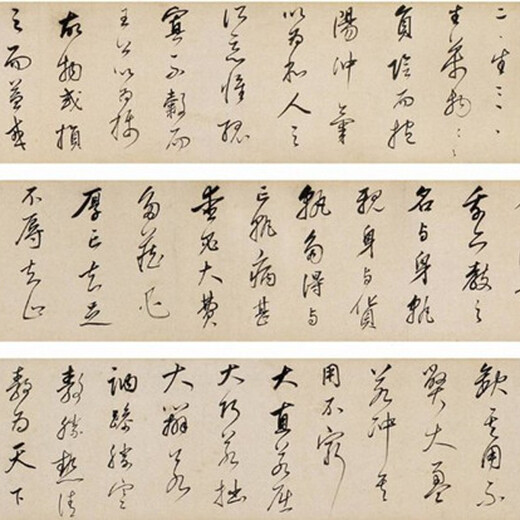 二〻生三〻
生萬物〻〻
負陰而抱
陽沖氣
以為和人之
所惡惟孤
寡不穀而
王公以為稱
故物或損
之而益或
我亦教之
名与身孰
親身与貨
孰多得与
亡孰病甚
愛必大費
多藏必
厚亡知足
不辱知止
缺其用不
弊大盈
若沖其
用不窮
大直若屈
大巧若拙
大辯若
訥躁勝寒
靜勝熱清
靜為天下